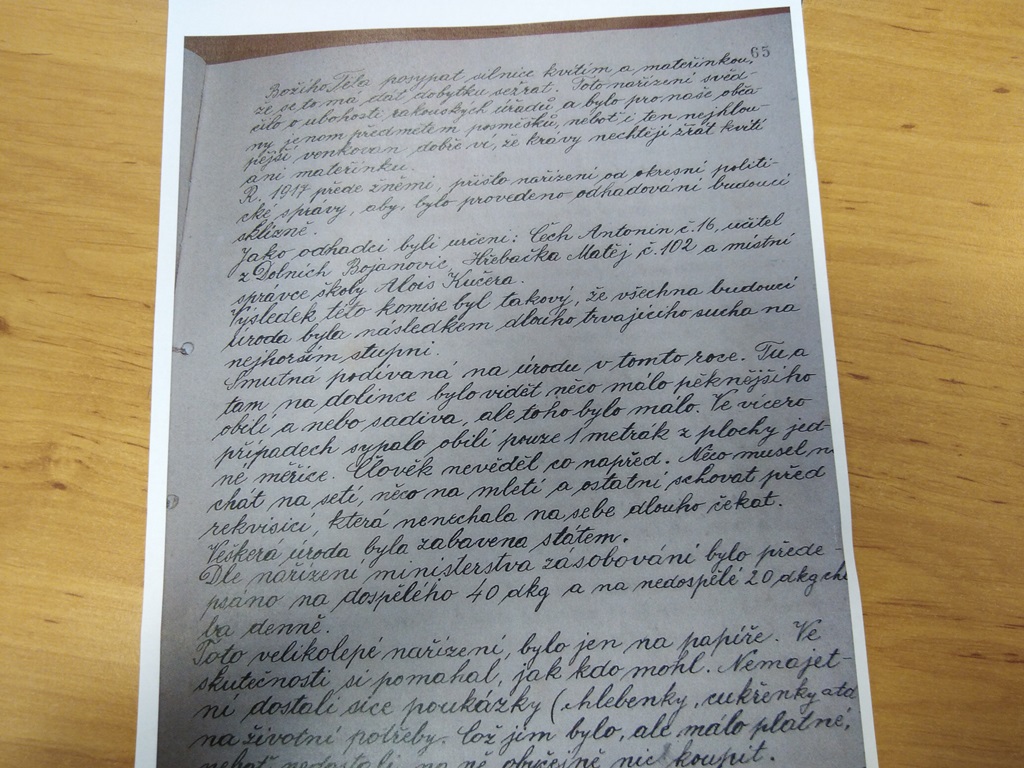 65
Božího Těla posypat silnice kvítím a mateřinkou,
že se to má dát dobytku sežrat. Toto nařízení svěd-
čilo o ubohosti rakouských úřadů a bylo pro naše obča-
ny jenom předmětem posměšků, neboť i ten nejhlou-
pější venkovan dobře ví, že krávy nechtějí žřát kvítí
ani mateřinku.
R. 1917 přede žněmi, přišlo nařízení od okresní politi-
cké správy, aby bylo provedeno odhadování budoucí
sklizně.
Jako odhadci byli určeni: Čech Antonín č. 16, učitel
z Dolních Bojanovic, Hřebačka Matěj č. 102 a místní
správce školy Alois Kučera.
Výsledek této komise byl takový, že všechna budoucí
úroda byla následkem dlouho trvajícího sucha na
nejhorším stupni.
Smutná podívaná na úrodu v tomto roce. Tu a
tam na dolince bylo vidět něco málo pěknějšího
obilí a nebo sadiva, ale toho bylo málo. Ve vícero
případech sypalo obilí pouze 1 metrák z plochy jed-
né měřice. Člověk nevěděl co napřed. Něco musel n
chat na setí, něco na mletí a ostatní schovat před
rekvisicí, která nenechala na sebe dlouho čekat.
Veškerá úroda byla zabavena státem.
Dle nařízení ministerstva zásobování bylo přede-
psáno na dospělého 40 dkg a na nedospělé 20 dkg chl
ba denně.
Toto velikolepé nařízení, bylo jen na papíře. Ve
skutečnosti si pomahal, jak kdo mohl. Nemajet-
ní dostali sice poukázky (chlebenky, cukřenky atd
na životní potřeby. Což jim bylo, ale málo platné,
neboť nedostali na ně obyčejně nic koupit.